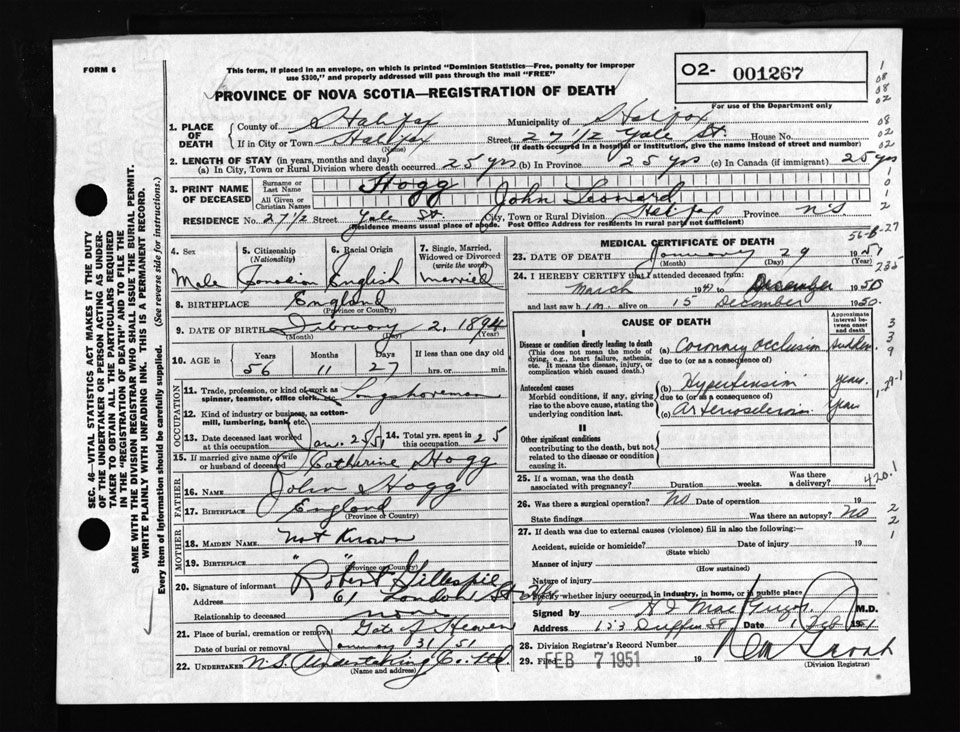 FORM 6
This form, if placed in an envelope, on which is printed "Dominion Statistics—Free, penalty for improper
use $300," and properly addressed will pass through the mail "FREE"
O2- 001267
For use of the Department only
PROVINCE OF NOVA SCOTIA—REGISTRATION OF DEATH
1. PLACE OF DEATH
County of Halifax Municipality of Halifax
If in City or Town Halifax (Name) Street 27 1/2 Yale St. House No.
(If death occurred in a hospital or institution, give the name instead of street and number)
2. LENGTH OF STAY (in years, months and days)
(a) In City, Town or Rural Division where death occurred 25 yrs (b) In Province 25 yrs (c) In Canada (if immigrant) 25 yrs
3. PRINT NAME OF DECEASED
Surname or Last Name Hogg
All Given or Christian Names John Leonard
RESIDENCE No. 27 1/2 Street Yale St City, Town or Rural Division Halifax Province N.S
(Residence means usual place of abode. Post Office Address for residents in rural parts not sufficient)
4. Sex Male
5. Citizenship (Nationality) Canadian
6. Racial Origin English
7. Single, Married, Widowed or Divorced (write the word) married
8. BIRTHPLACE England
(Province or Country)
9. DATE OF BIRTH February 2, 1894
(Month) (Day) (Year)
10. AGE in Years 56 Months 11 Days 27 If less than one day old hrs. or min.
OCCUPATION
11. Trade, profession, or kind of work as spinner, teamster, office clerk, etc. Longshoreman
12. Kind of industry or business, as cotton-mill, lumbering, bank, etc.
13. Date deceased last worked at this occupation Jan. 28/51 14. Total yrs. spent in 25
15. If married give name of wife or husband of deceased Catherine Hogg
FATHER
16. Name John Hogg
17. Birthplace England
(Province or Country)
MOTHER
18. Maiden Name Not known
19. Birthplace " "
(Province or Country)
20. Signature of informant Robert Gillespie
Address 61 London St
Relationship to deceased none
21. Place of burial, cremation or removal Gate of Heaven
Date of burial January 31 51
22. UNDERTAKER N.S. Undertaking Co. Ltd
(Name and address)
MEDICAL CERTIFICATE OF DEATH
56-B-27
23. DATE OF DEATH January 29 1951
(Month) (Day) (Year)
24. I HEREBY CERTIFY that I attended deceased from:
March 1949 to December 1950
and last saw him alive on 15 December 1950.
CAUSE OF DEATH
Approximate interval between onset and death
I
Disease or condition directly leading to death (a) Coronary occlusion sudden
(This does not mean the mode of dying, e.g., heart failure, asthenia, etc. It means the disease, injury, or complication which caused death.)
due to (or as a consequence of)
Antecedent causes (b) Hypertension years.
Morbid conditions, if any, giving rise to the above cause, stating the underlying condition last.
due to (or as a consequence of)
(c) Arteriosclerosis years
II
Other significant conditions
contributing to the death, but not related to the disease or condition causing it.
25. If a woman, was the death associated with pregnancy? Duration weeks. Was there a delivery?
420.1
26. Was there a surgical operation? No Date of operation 19
State findings Was there an autopsy? No
27. If death was due to external causes (violence) fill in also the following:—
Accident, suicide or homicide? Date of injury 19
(State which)
Manner of injury
(How sustained)
Nature of injury
Specify whether injury occurred in industry, in home, or in public place
Signed by M.D.
Address Date 1 Feb 1951
28. Division Registrar's Record Number
29. Filed FEB 7 1951 19
(Division Registrar)
SEC. 46—VITAL STATISTICS ACT MAKES IT THE DUTY
OF THE UNDERTAKER OR PERSON ACTING AS UNDER-
TAKER TO OBTAIN ALL THE PARTICULARS REQUIRED
IN THE "REGISTRATION OF DEATH" AND TO FILE THE
SAME WITH THE DIVISION REGISTRAR WHO SHALL ISSUE THE BURIAL PERMIT.
WRITE PLAINLY WITH UNFADING INK. THIS IS A PERMANENT RECORD.
Every item of information should be carefully supplied. (See reverse side for instructions.)